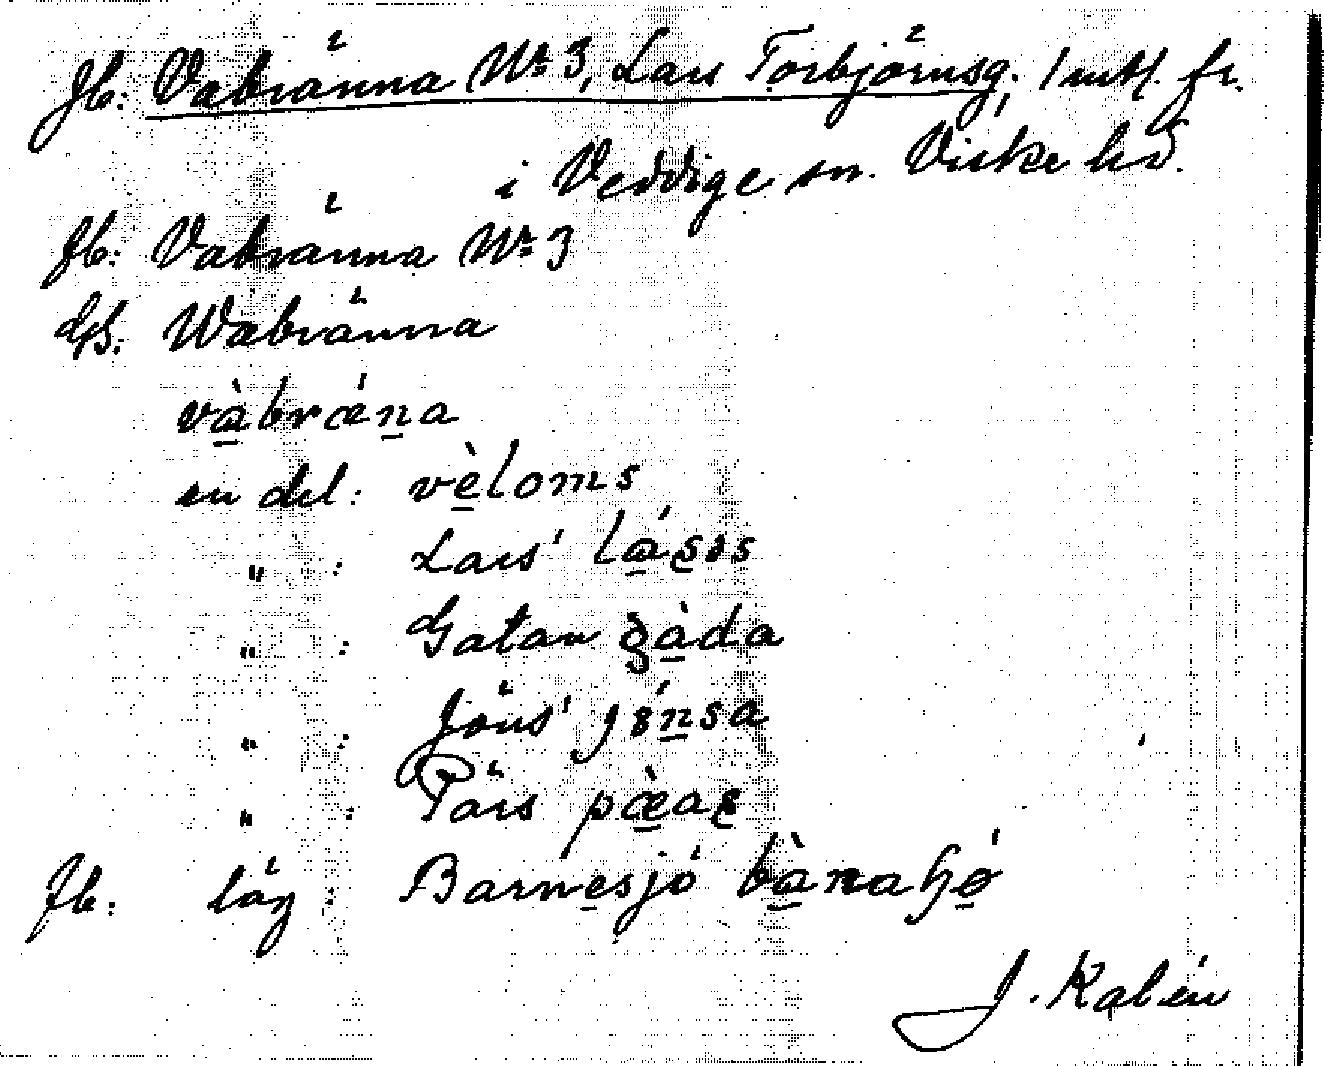 Jb: Vabränna Nr 3, Lars Torbjörnsg. 1 mtl. fr.
i Veddige sn. Viske hd.
Jb: Vabränna Nr 3
GB: Wabränna
và̱brǽṉa
en del: vè̱loms
" : Lars' lá̱s̱əs
" : Gatan gà̱da
" : Jöns' jö́ṉsa
" : Pärs pæ̱̀aṟ
Jb. läg : Barnesjö bà̱naɧǿ̱
J. Kalén